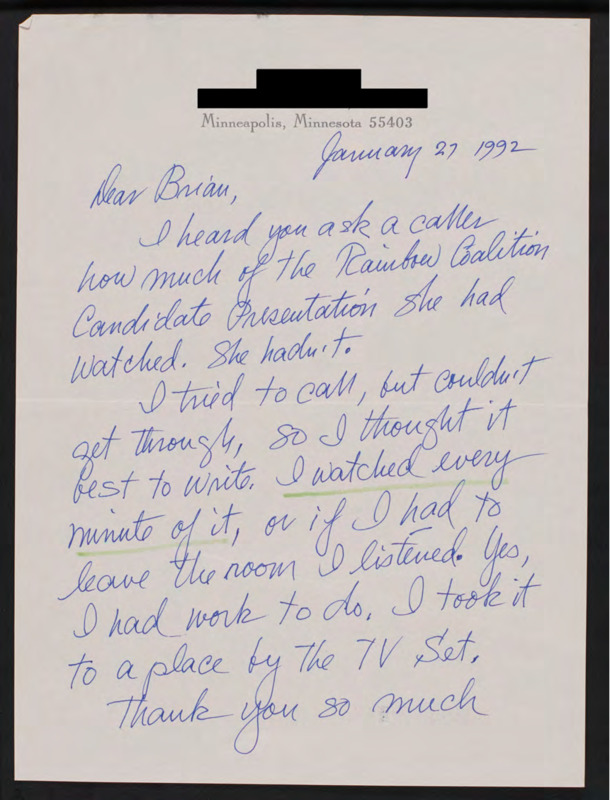 Minneapolis, Minnesota 55403
January 27 1992
Dear Brian,
I heard you ask a caller
how much of the Rainbow Coalition
Candidate Presentation she had
watched. She hadn't.
I tried to call, but couldn't
get through, so I thought it
best to write. I watched every
minute of it, or if I had to
leave the room I listened. Yes,
I had work to do. I took it
to a place by the TV Set.
Thank you so much